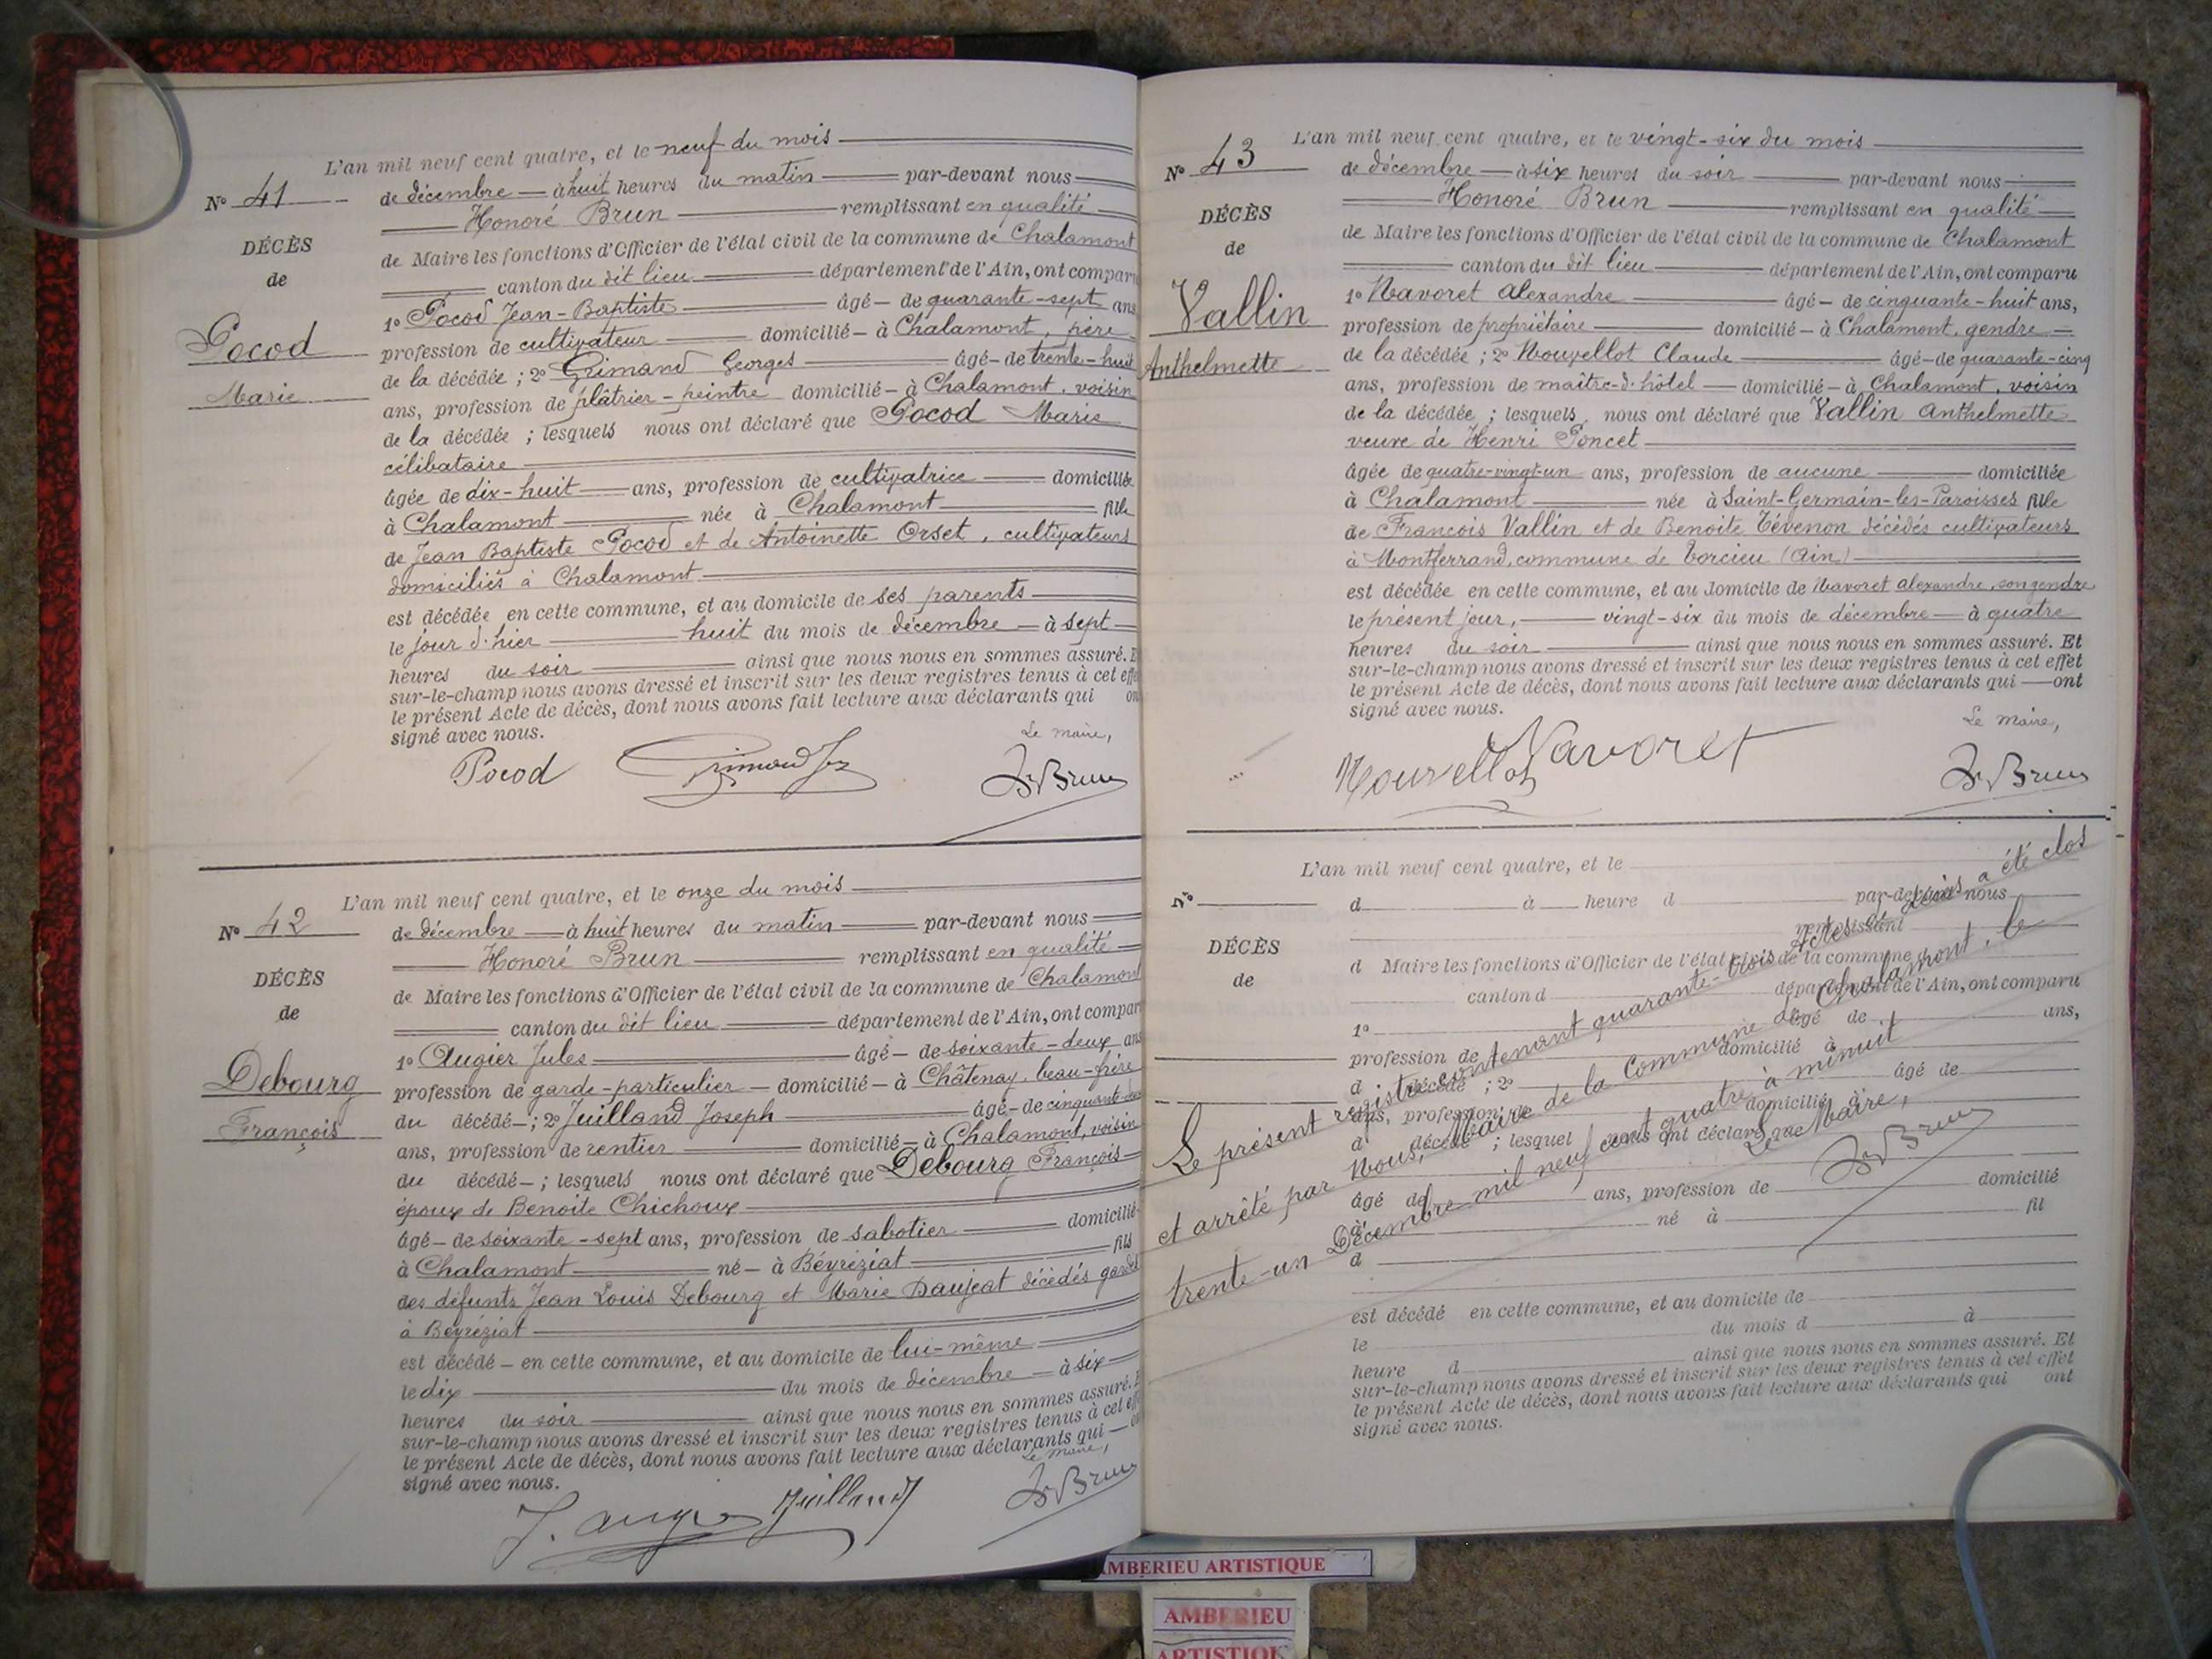 L'an mil neuf cent quatre, et le neuf du mois
N° 41
de décembre à huit heures du matin par-devant nous
Honoré Brun remplissant en qualité
DÉCÈS
de Maire les fonctions d'Officier de l'état civil de la commune de Chalamont
de
canton du dit lieu département de l'Ain, ont comparu
1° Pocod Jean-Baptiste âgé de quarante-sept ans
Pocod
profession de cultivateur domicilié à Chalamont, père
Marie
de la décédée ; 2° Grimand Georges âgé de trente-huit
ans, profession de plâtrier-peintre domicilié à Chalamont, voisin
de la décédée ; lesquels nous ont déclaré que Pocod Marie
célibataire
âgée de dix-huit ans, profession de cultivatrice domiciliée
à Chalamont née à Chalamont fille
de Jean Baptiste Pocod et de Antoinette Orset, cultivateurs
domiciliés à Chalamont
est décédée en cette commune, et au domicile de ses parents
le jour d'hier huit du mois de décembre à sept
heures du soir ainsi que nous nous en sommes assuré. E
sur-le-champ nous avons dressé et inscrit sur les deux registres tenus à cet effe
le présent Acte de décès, dont nous avons fait lecture aux déclarants qui on
signé avec nous.
Le maire,
Pocod Grimand Hr Brun
L'an mil neuf cent quatre, et le onze du mois
N° 42
de décembre à huit heures du matin par-devant nous
Honoré Brun remplissant en qualité
DÉCÈS
de Maire les fonctions d'Officier de l'état civil de la commune de Chalamont
de
canton du dit lieu département de l'Ain, ont compar
1° Augier Jules âgé de soixante-deux ans
Debourg
profession de garde-particulier domicilié à Châtenay, beau-frère
François
du décédé ; 2° Juilland Joseph âgé de cinquante-
ans, profession de rentier domicilié à Chalamont, voisin
du décédé ; lesquels nous ont déclaré que Debourg François
époux de Benoite Chichoux
âgé de soixante-sept ans, profession de sabotier domicilié
à Chalamont né à Béyréziat fils
des défunts Jean Louis Debourg et Marie Daujeat décédés gardes
à Béyréziat
est décédé en cette commune, et au domicile de lui-même
le dix du mois de décembre à six
heures du soir ainsi que nous nous en sommes assuré. E
sur-le-champ nous avons dressé et inscrit sur les deux registres tenus à cet eff
le présent Acte de décès, dont nous avons fait lecture aux déclarants qui
signé avec nous.
Le maire,
J. Augier Juilland Hr Brun
L'an mil neuf cent quatre, et le vingt-six du mois
N° 43
de décembre à six heures du soir par-devant nous
Honoré Brun remplissant en qualité
DÉCÈS
de Maire les fonctions d'Officier de l'état civil de la commune de Chalamont
de
canton du dit lieu département de l'Ain, ont comparu
1° Navoret Alexandre âgé de cinquante-huit ans,
Vallin
profession de propriétaire domicilié à Chalamont, gendre
Anthelmette
de la décédée ; 2° Nouvellot Claude âgé de quarante-cinq
ans, profession de maître-d'hôtel domicilié à Chalamont, voisin
de la décédée ; lesquels nous ont déclaré que Vallin Anthelmette
veuve de Henri Poncet
âgée de quatre-vingt-un ans, profession de aucune domiciliée
à Chalamont née à Saint-Germain-les-Paroisses fille
de François Vallin et de Benoite Tévenon décédés cultivateurs
à Montferrand, commune de Torcieu (Ain)
est décédée en cette commune, et au domicile de Navoret Alexandre, son gendre
le présent jour, vingt-six du mois de décembre à quatre
heures du soir ainsi que nous nous en sommes assuré. Et
sur-le-champ nous avons dressé et inscrit sur les deux registres tenus à cet effet
le présent Acte de décès, dont nous avons fait lecture aux déclarants qui ont
signé avec nous.
Le maire,
Nouvellot Navoret Hr Brun
L'an mil neuf cent quatre, et le
N° d à heure d par-devant nous
remplissant
DÉCÈS
d Maire les fonctions d'Officier de l'état civil de la commune d
de
canton d département de l'Ain, ont comparu
1° âgé de ans,
profession de domicilié à
d décédé ; 2° âgé de
ans, profession de domicilié à
d décédé ; lesquel nous ont déclaré que
âgé de ans, profession de domicilié
à né à fil
d
est décédé en cette commune, et au domicile de
le du mois d à
heure d ainsi que nous nous en sommes assuré. Et
sur-le-champ nous avons dressé et inscrit sur les deux registres tenus à cet effet
le présent Acte de décès, dont nous avons fait lecture aux déclarants qui ont
signé avec nous.
Le présent registre contenant quarante-trois actes de décès a été clos
et arrêté par Nous, Maire de la Commune de Chalamont, le
trente-un Décembre mil neuf cent quatre, à minuit
Le Maire,
Hr Brun
AMBERIEU ARTISTIQUE
AMBERIEU
ARTISTIQ